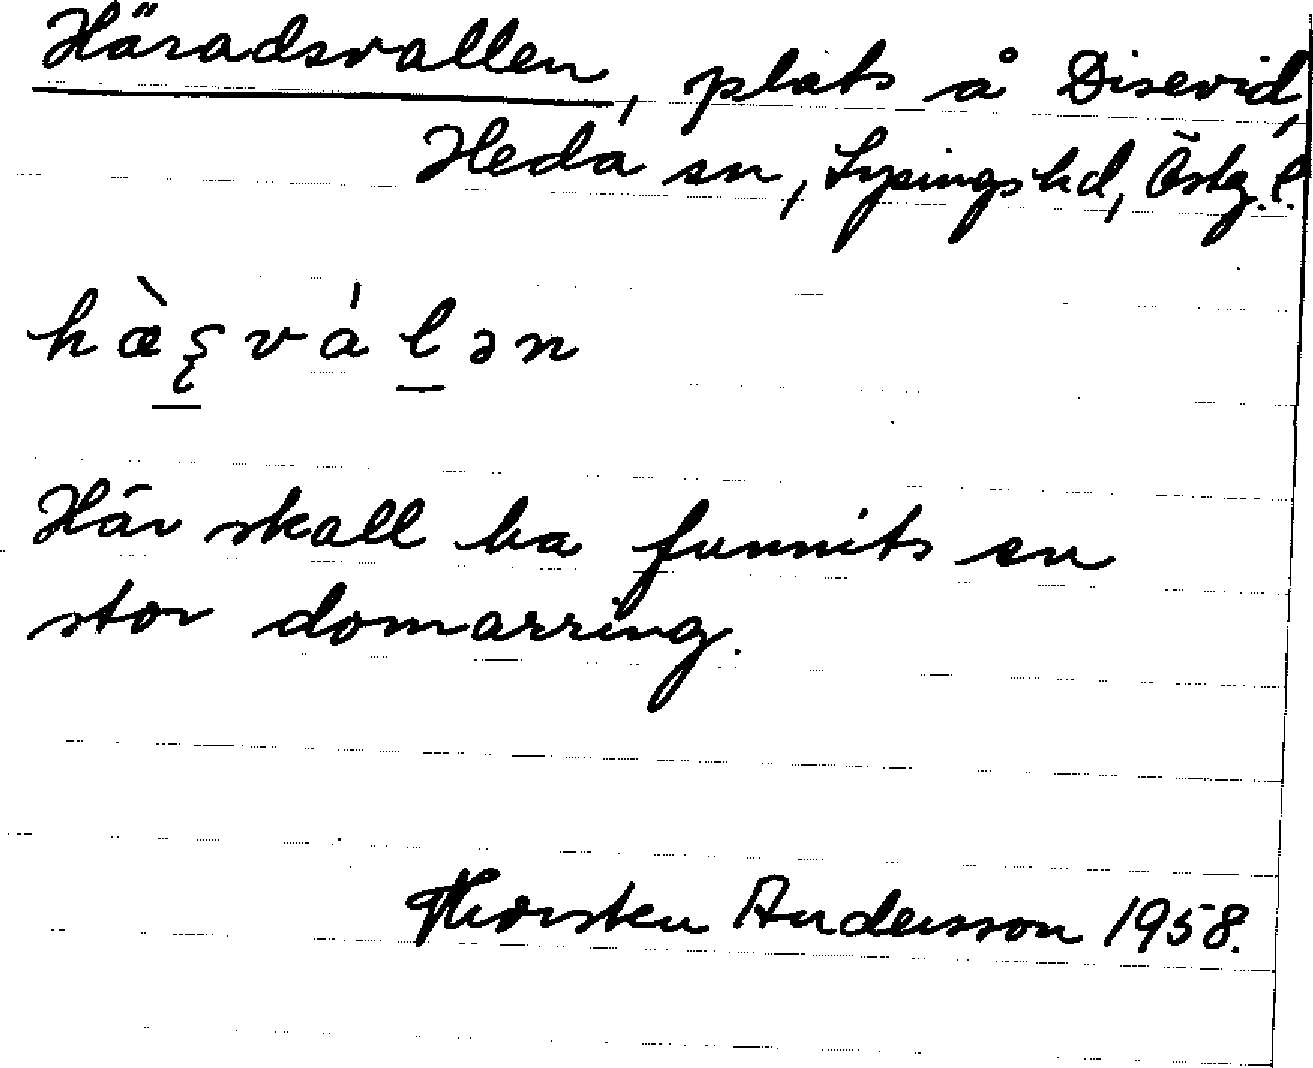 Häradsvallen, plats å Disevid,
Heda sn, Lysings hd, Östg. l.
hæ̀ʂválən
Här skall ha funnits en
stor domarring.
Thorsten Andersson 1958.